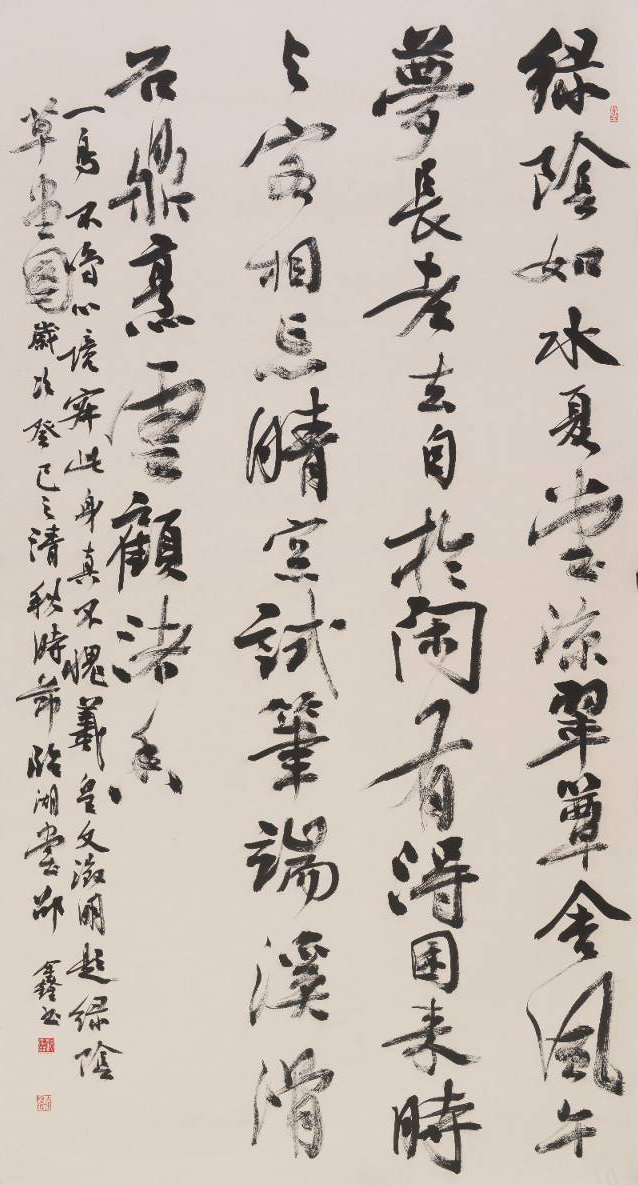 綠陰如水夏堂涼翠簟含風午
夢長老去自於閑有得困来時
与客相忘晴窓試筆端溪滑
石鼎烹雲顧渚香
一鳥不鳴心境寂此身真不愧羲皇文徵明題綠陰
草堂圖歲次癸巳之清秋時節湖堂邵鑫书